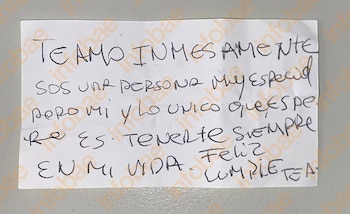 TE AMO INMESAMENTE
SOS UNA PERSONA MUY ESPECIAL
PERO MI Y LO UNICO QUE, ESPE
RO ES. TENERTE SIEMPRE
EN MI VIDA. FELIZ
CUMPLE TEA.
infobae